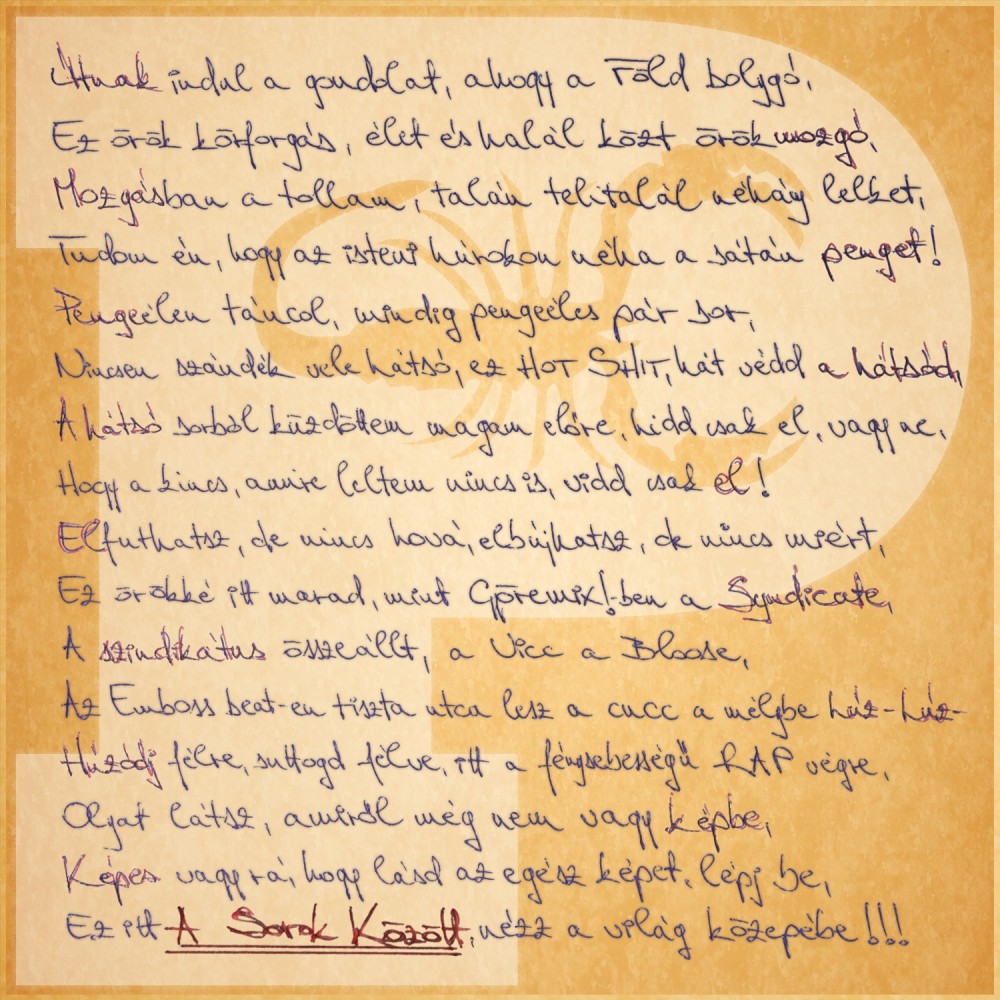 Útnak indul a gondolat, ahogy a Föld bolygó,
Ez örök körforgás, élet és halál közt örök mozgó,
Mozgásban a tollam, talán telitalál néhány lelket,
Tudom én, hogy az isteni húrokon néha a sátán penget!
Pengeélen táncol, mindig pengeéles pár sor,
Nincsen szándék vele hátsó, ez HOT SHIT, hát védd a hátsód,
A hátsó sorból küzdöttem magam előre, hidd csak el, vagy ne,
Hogy a kincs, amire leltem nincs is, vidd csak el!
Elfuthatsz, de nincs hová, elbújhatsz, de nincs miért,
Ez örökké itt marad, mint Göremix!-ben a Syndicate,
A szindikátus összeállt, a Vicc a Bloose,
Az Emboss beat-en tiszta utca lesz a cucc a mélybe húz-húz-
Húzódj félre, suttogd félve, itt a fénysebességű RAP végre,
Olyat látsz, amiről még nem vagy képbe,
Képes vagy rá, hogy lásd az egész képet, lépj be,
Ez itt A Sorok Között, nézz a világ közepébe!!!